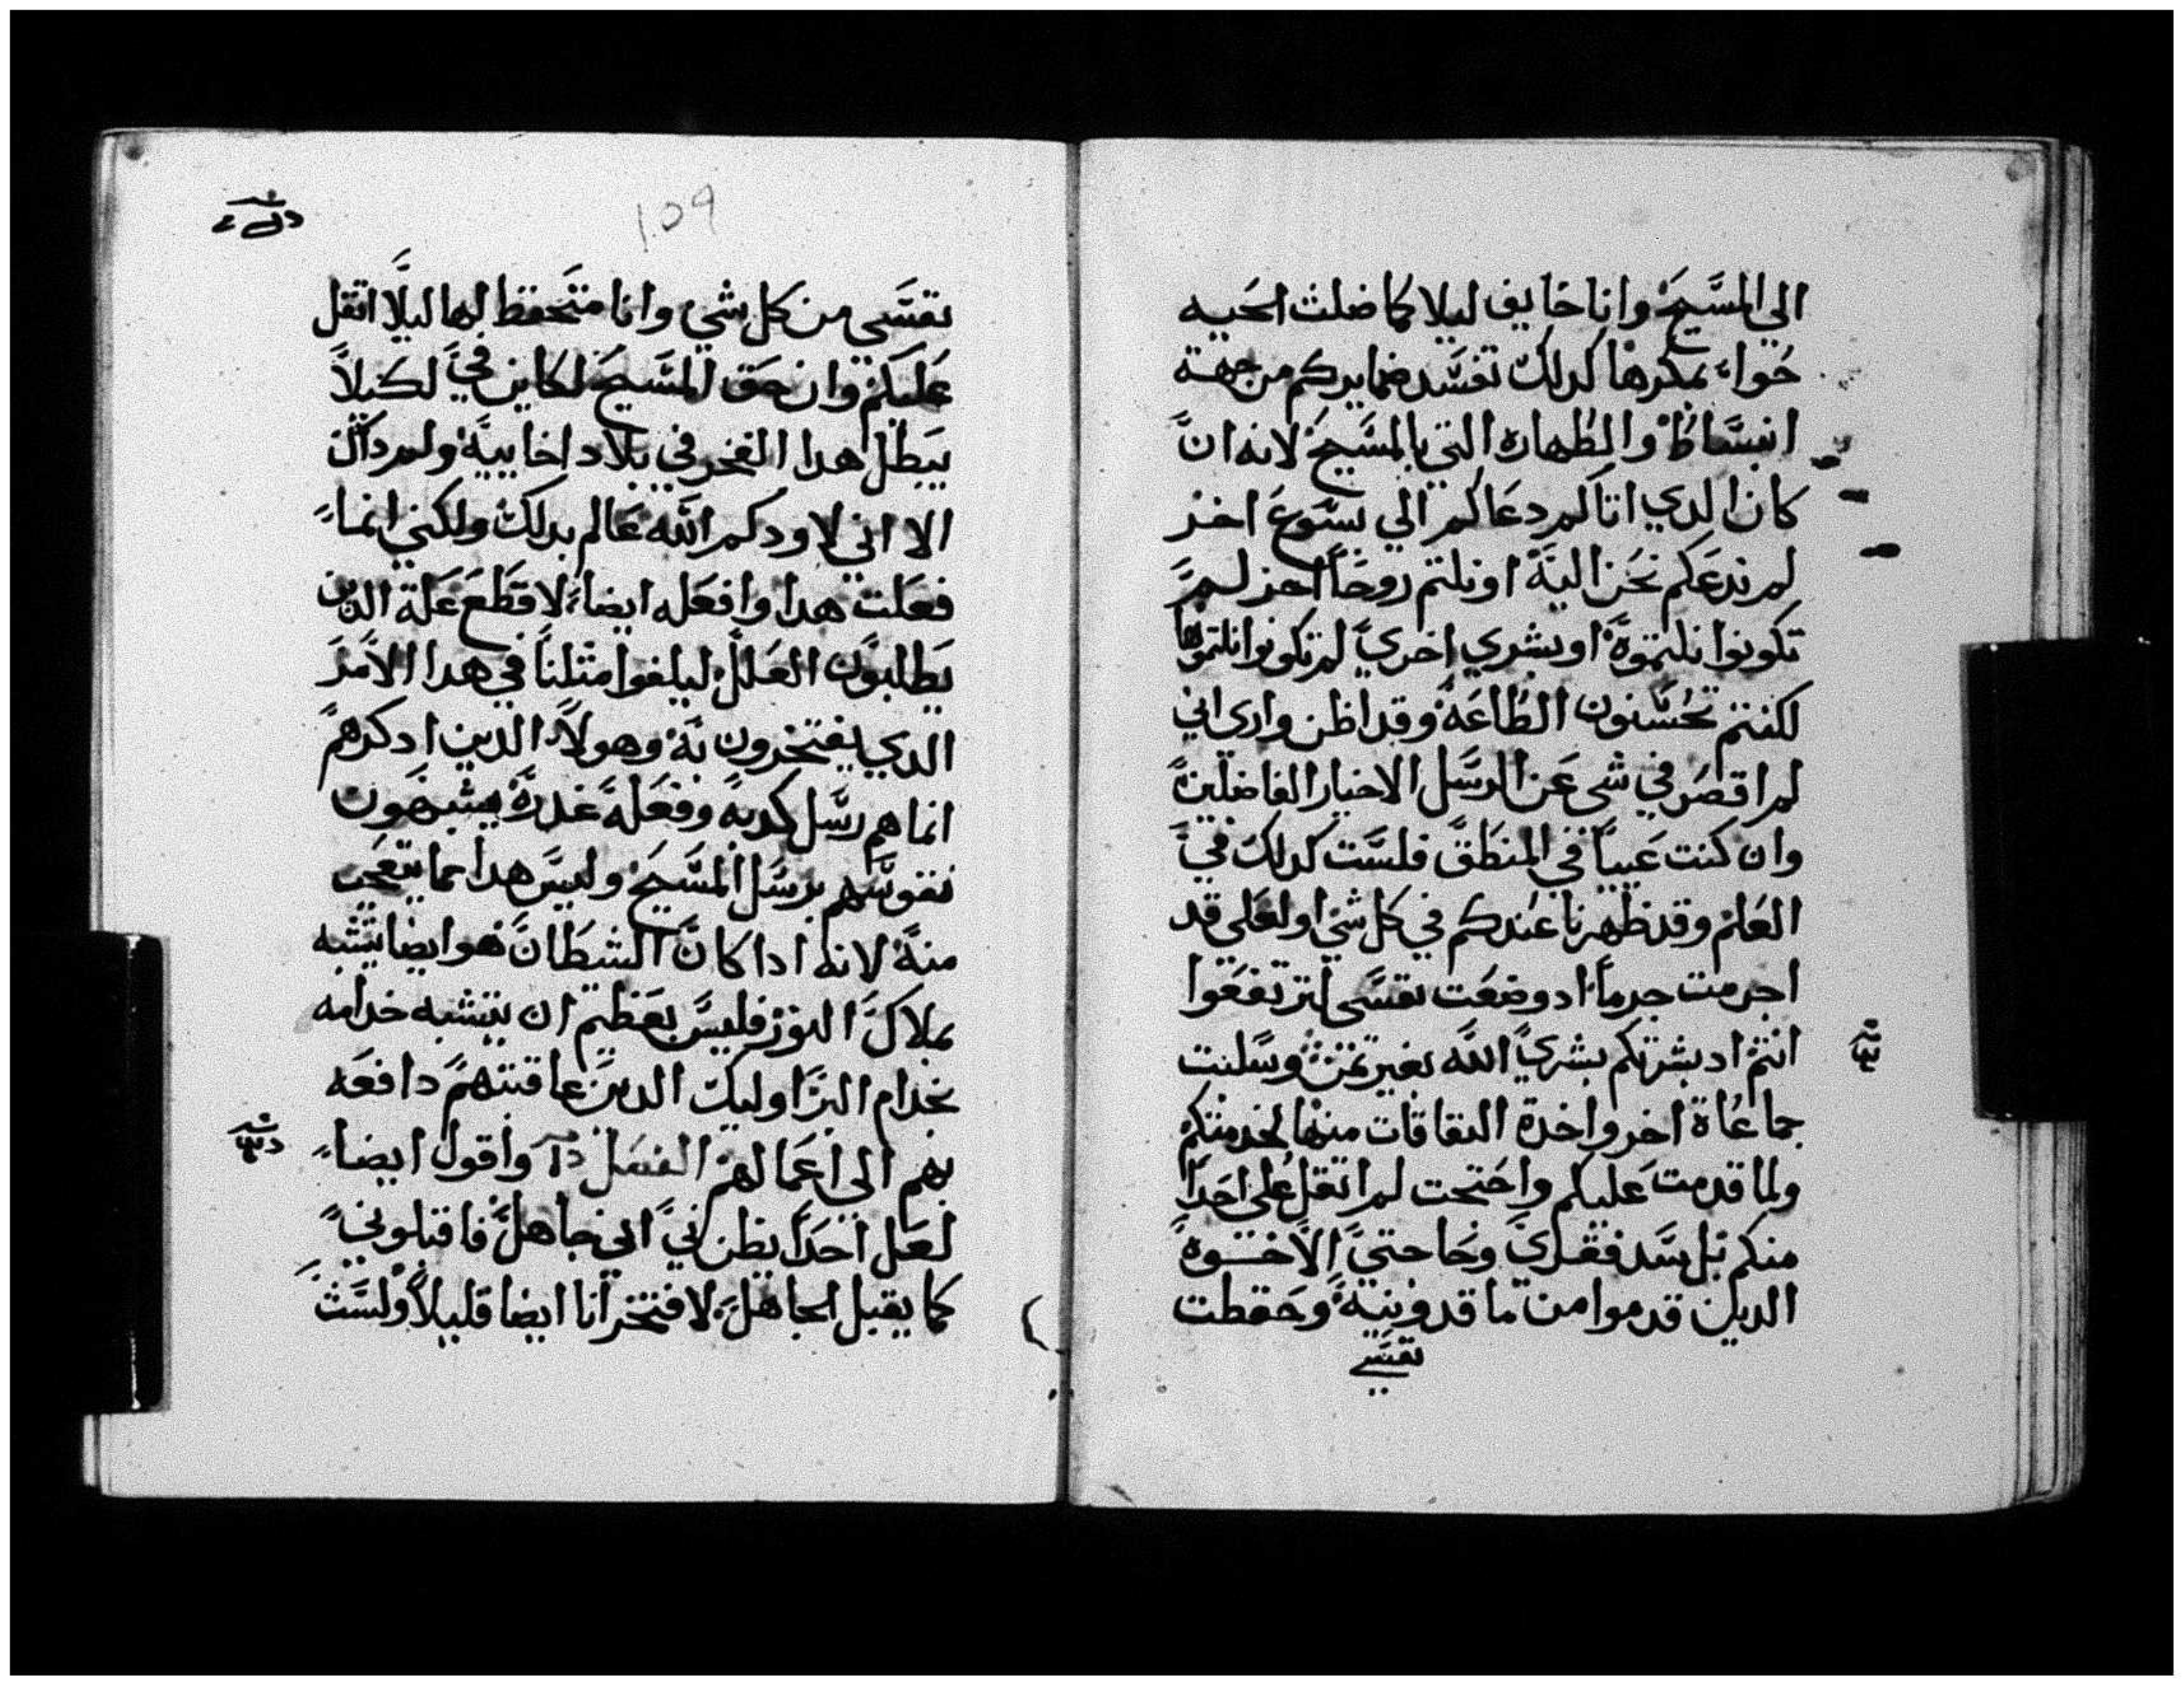 الي المسَّيحَ وانا خايف ليلا كما ضلت الحَيه
حُواء بمكرها كدلك تفسَّد ضمايركم من جهة
انبسَّاط والطهاره التي بالمسَّيحَ لانه ان
كان الدي اتاكم دعاكم الي يسَّوعَ اخر
لم ندعَكم نحَن اليهَ او نلتم روحَاً اخر لم
تكونوا نلتموهَ او بشري اخريَ لم تكونوا نلتموها
لكنتم تحُسَّنون الطاعَهَ وقد اظن واري اني
لم اقصَر في شي عَن الرسَّل الاخيار الفاضلين
وان كنت عَيياً في المنطَقَ فلسَّت كدلك فيَ
العَلم وقد ظهرنا عَندكم في كل شي او لعَلي قد
اجرمت جرماً اد وضعَت نفسَّي لترتفعَوا
انتم اد بشرتكم بشريَ اللَّه بغير تمن وسَّلبت
جماعَاة اخر واخدة النفاقات منها لخدمتكم
ولما قدمت عَليكم واحَتجت لم اتقل عَلي احَداً
منكم بل سَّد فقريَ وحَاجتيَ الاخوة
الدين قدموا من ماقدونيهَ وحَفظت
نفسَّي
109
نفسَّي من كل شي وانا متحَفظ لها ليلَا اتقل
عَليكم وان حَق المسَّيحَ لكاين فيَ لكيلاً
يبَطل هدا الفخر في بلاد اخاييهَ ولم داك
الا اني لا ودكم اللَّه عَالم بدلك ولكني انما
فعَلت هدا وافعَله ايضاً لاقطَعَ عَلة الدين
يَطلبوَن العَللَ ليلفوا مثلناً في هدا الامَر
الدي يفتخرون بهَ وهولاَ الدين ادكرهم
انما هم رسَّل كدبهَ وفعَلهَ غدرهَ يشبهَون
نفوسَّهم برسَّل المسَّيحَ وليسَّ هدا مما يتعَجب
منهَ لانه ادا كانَ الشطَانَ هو ايضا يتشبه
بملاكَ النورَ فليسَّ بعَظيم ان يتشبه خدامه
بخدام البرَ اوليك الدينَ عاقبتهمَ دافعَه
بهم الي اعَمالهم الفصَل واقول ايضاً
لعَل احَدَاً يظن بيَ اني جاهلَ فاقبلوني
كما يقبل الجاهلَ لافتخر انا ايضا قليلاً ولسَّت